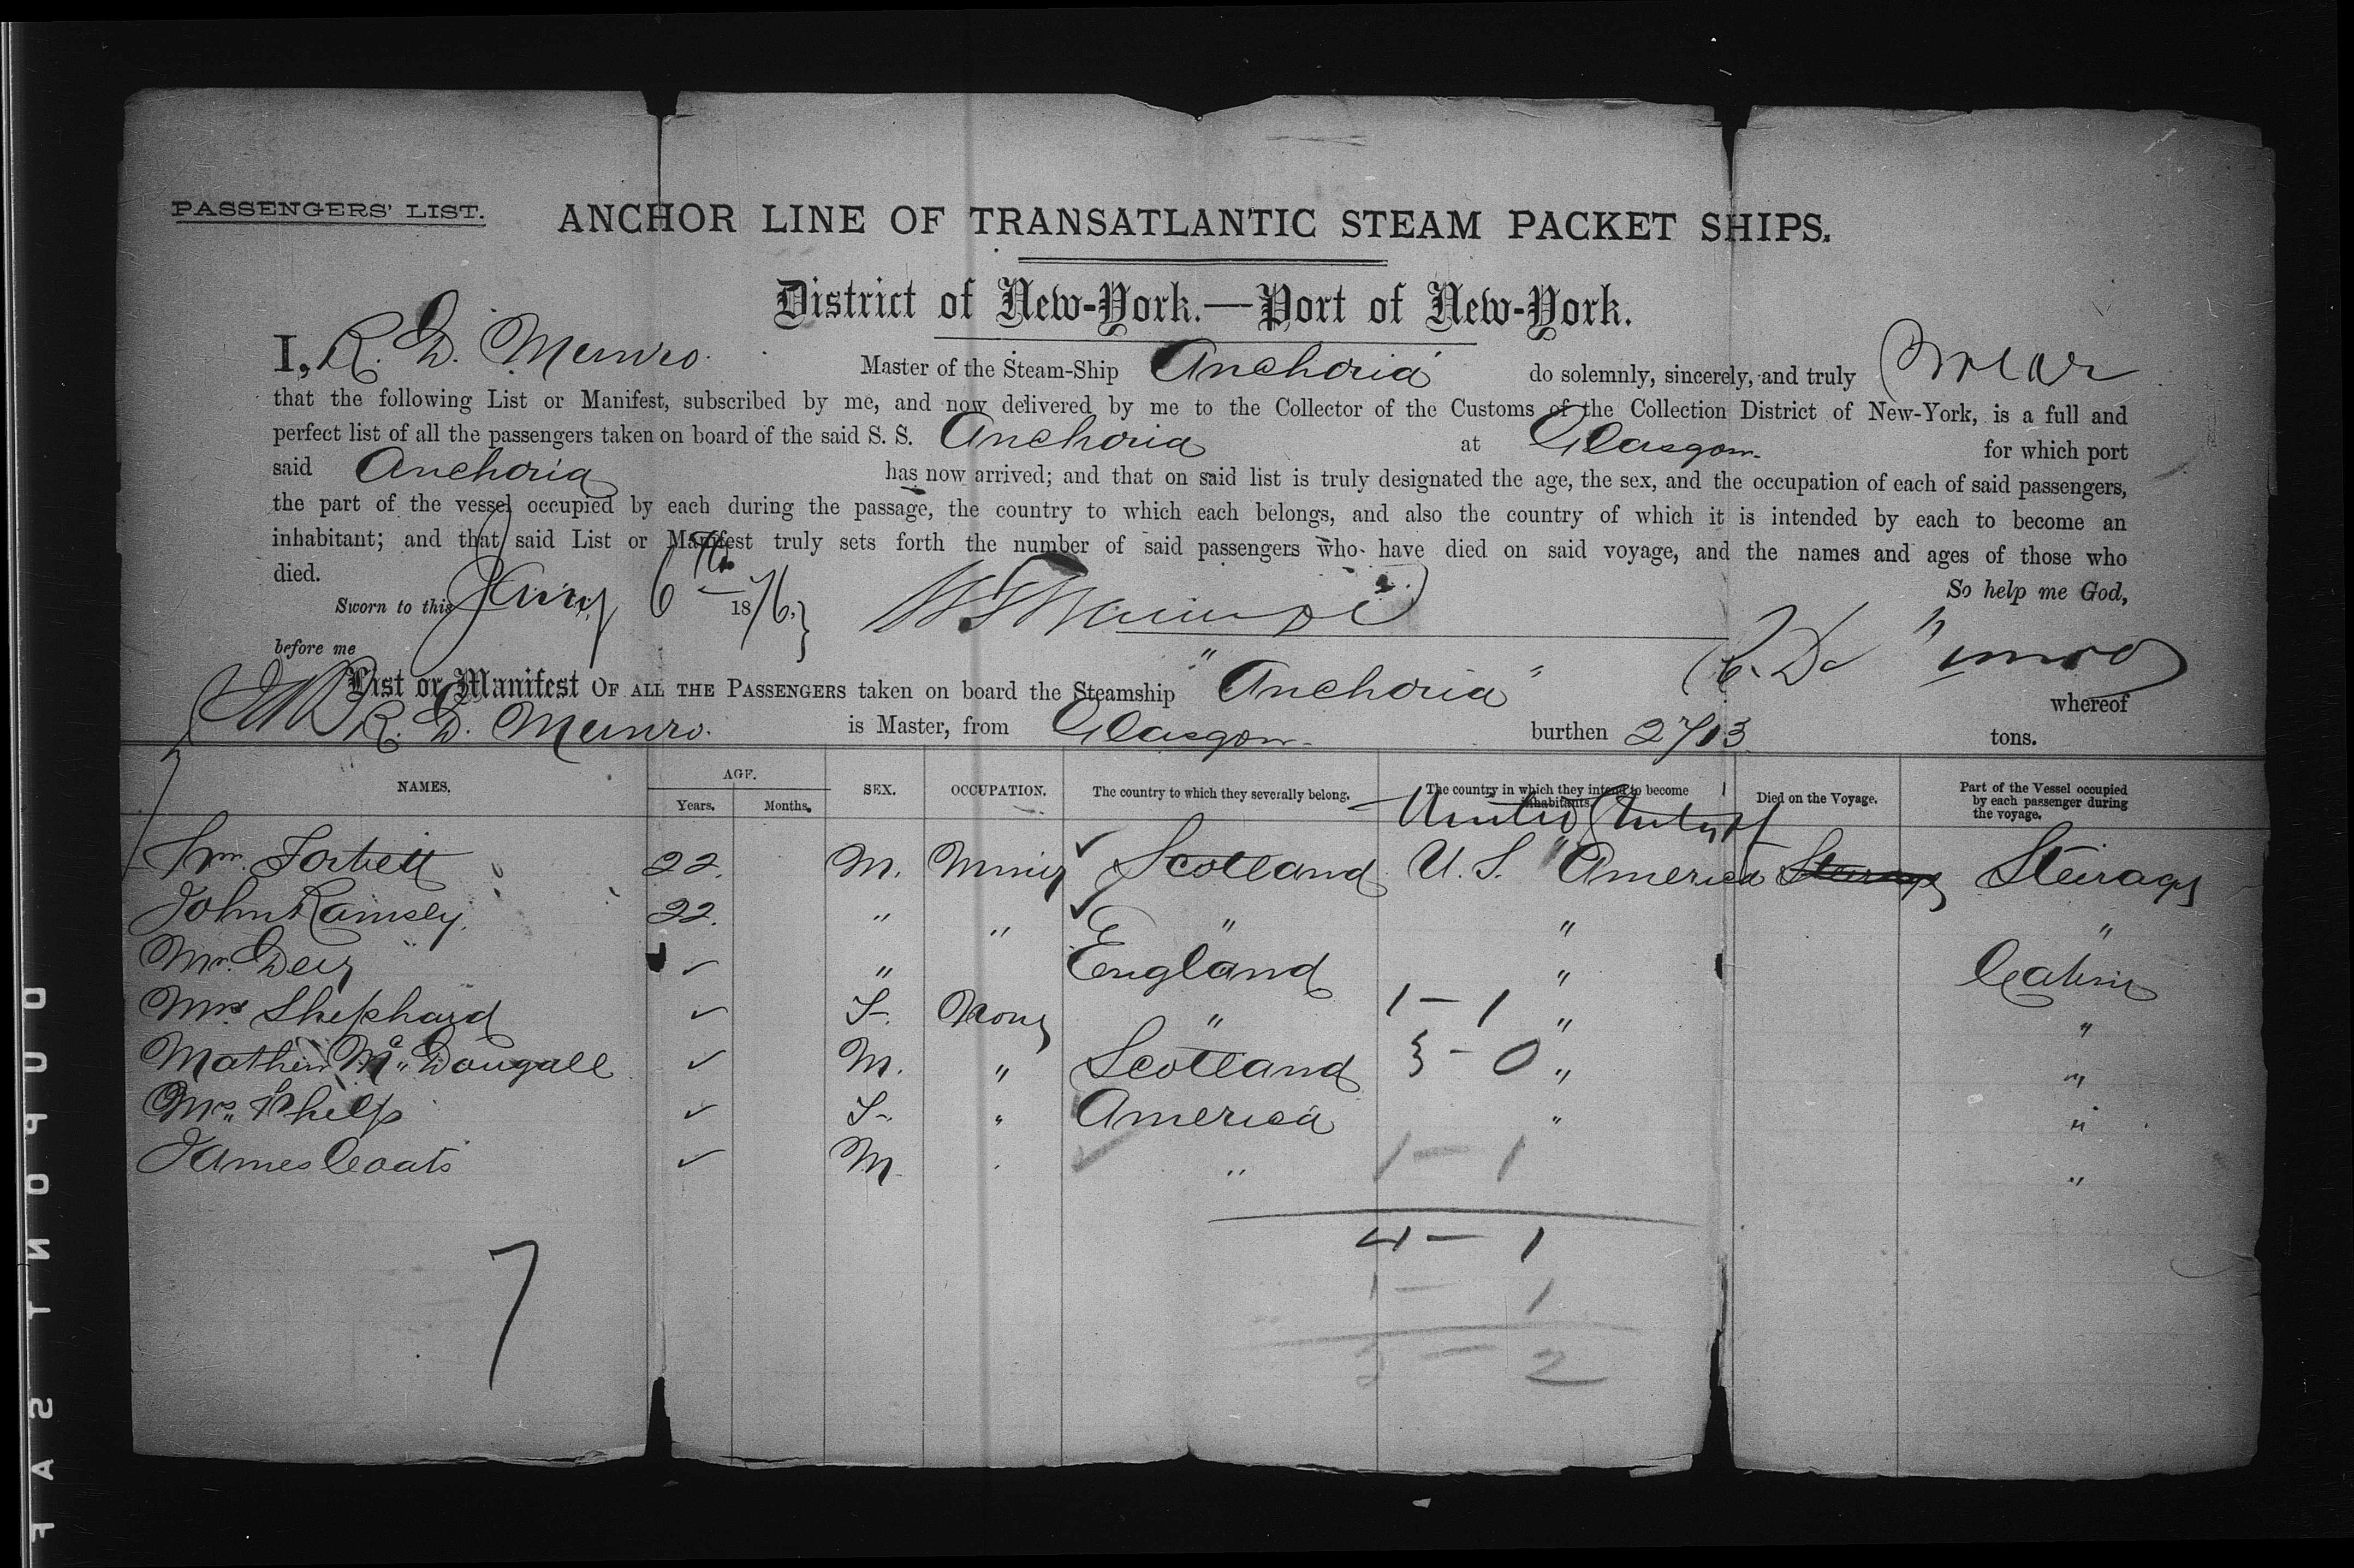 PASSENGERS' LIST.
ANCHOR LINE OF TRANSATLANTIC STEAM PACKET SHIPS.
District of New-York.—Port of New-York.
I, R. D. Munro. Master of the Steam-Ship Anchoria do solemnly, sincerely, and truly swear
that the following List or Manifest, subscribed by me, and now delivered by me to the Collector of the Customs of the Collection District of New-York, is a full and
perfect list of all the passengers taken on board of the said S. S. Anchoria at Glasgow. for which port
said Anchoria has now arrived; and that on said list is truly designated the age, the sex, and the occupation of each of said passengers,
the part of the vessel occupied by each during the passage, the country to which each belongs, and also the country of which it is intended by each to become an
inhabitant; and that said List or Manifest truly sets forth the number of said passengers who have died on said voyage, and the names and ages of those who
died. So help me God,
Sworn to this Jany 6th 1876.
before me R. D. Munro
List or Manifest OF ALL THE PASSENGERS taken on board the Steamship "Anchoria" whereof
R. D. Munro. is Master, from Glasgow. burthen 2713 tons.
NAMES. AGE. Years. Months. SEX. OCCUPATION. The country to which they severally belong. The country in which they intend to become inhabitants. Died on the Voyage. Part of the Vessel occupied by each passenger during the voyage.
United States of
22. M. Miner Scotland U. S. America Steirage Steirage
John Ramsey. 22. " " " " "
Mr. " England " Cabin
Mrs. Shephard F. None " 1 - 1 " "
Mathew McDougall M. " Scotland 3 - 0 " "
Mrs. Phelps F. " America " "
James Coats M. " " 1 - 1 "
4 - 1
1 - 1
7
2